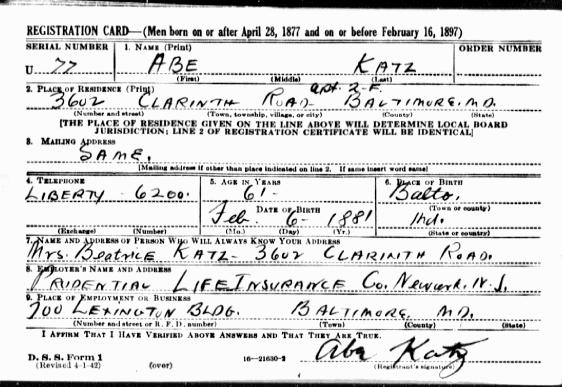 REGISTRATION CARD—(Men born on or after April 28, 1877 and on or before February 16, 1897)
SERIAL NUMBER 1. NAME (Print) ORDER NUMBER
U 77 ABE KATZ
(First) (Middle) (Last)
apt. 2-F.
2. PLACE OF RESIDENCE (Print)
3602 CLARINTH ROAD- BALTIMORE, MD.
(Number and street) (Town, township, village, or city) (County) (State)
[THE PLACE OF RESIDENCE GIVEN ON THE LINE ABOVE WILL DETERMINE LOCAL BOARD
JURISDICTION; LINE 2 OF REGISTRATION CERTIFICATE WILL BE IDENTICAL]
3. MAILING ADDRESS
SAME.
[Mailing address if other than place indicated on line 2. If same insert word same]
4. TELEPHONE 5. AGE IN YEARS 6. PLACE OF BIRTH
LIBERTY - 6200. 61- Balto.
DATE OF BIRTH (Town or county)
Feb. 6- 1881 Md.
(Exchange) (Number) (Mo.) (Day) (Yr.) (State or country)
7. NAME AND ADDRESS OF PERSON WHO WILL ALWAYS KNOW YOUR ADDRESS
Mrs. Beatrice KATZ- 3602 CLARINTH ROAD.
8. EMPLOYER'S NAME AND ADDRESS
PRIDENTIAL LIFE INSURANCE Co. Newark, N.J.
9. PLACE OF EMPLOYMENT OR BUSINESS
700 LEXINGTON BLDG. BALTIMORE, MD.
(Number and street or R. F. D. number) (Town) (County) (State)
I AFFIRM THAT I HAVE VERIFIED ABOVE ANSWERS AND THAT THEY ARE TRUE.
D. S. S. Form 1
(Revised 4-1-42) (over) 16—21630-2 Abe Katz
(Registrant's signature)